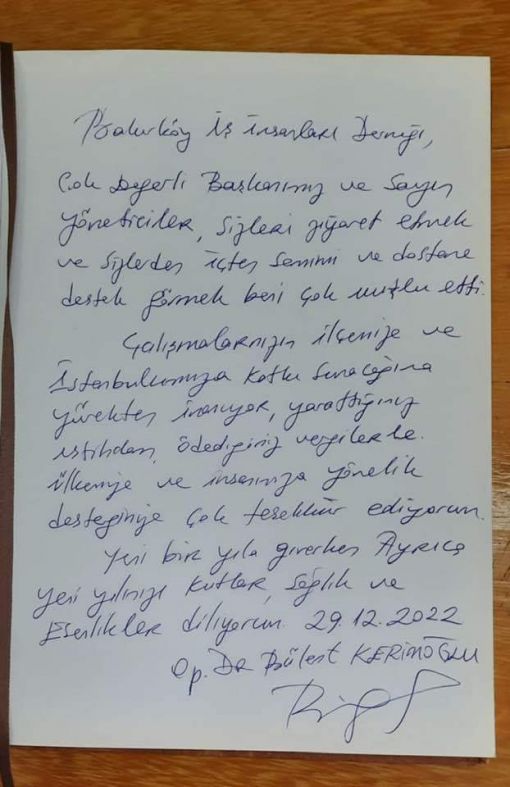 Bakırköy İş İnsanları Derneği,
Çok Değerli Başkanımız ve Sayın
yöneticiler, sizleri ziyaret etmek
ve sizlerden içten samimi ve dostane
destek görmek beni çok mutlu etti.
Çalışmalarınızın ilçemize ve
İstanbulumuza katkı sunacağına
yürekten inanıyor, yarattığınız
istihdam, ödediğiniz vergilerle.
ülkemize ve insanımıza yönelik
desteğinize çok teşekkür ediyorum.
Yeni bir yıla girerken Ayrıca
yeni yılınızı kutlar, Sağlık ve
Esenlikler diliyorum. 29.12.2022
Op. Dr Bülent KERİMOĞLU